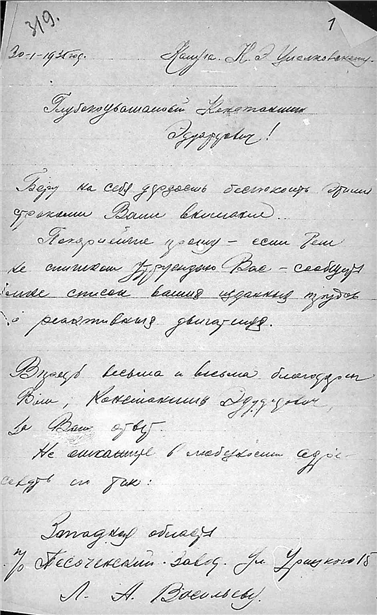 319.
1
30-I-1931 год. Калуга. К. Э. Циолковскому.
Глубокоуважаемый Константин
Эдуардович!
Беру на себя дерзость беспокоить этими
строками Ваше внимание.
Покорнейше прошу – если Вам
не слишком затруднит Вас – сообщить
мне список ваших изданных трудов
о реактивных двигателях.
Впредь весьма и весьма благодарен
Вам, Константин Эдуардович,
за Ваш ответ.
Не откажите в любезности адре-
совать так:
Западная область
п/о Песоченский-завод. ул. Урицкого 15
Л. А. Васильеву.